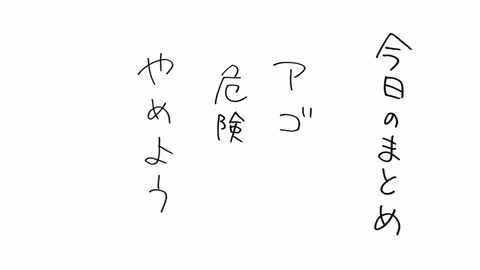 今日のまとめ
アゴ
危険
やめよう